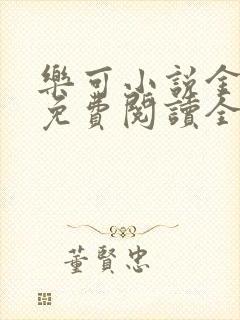 樂可小說全
免費閱讀全
董賢忠